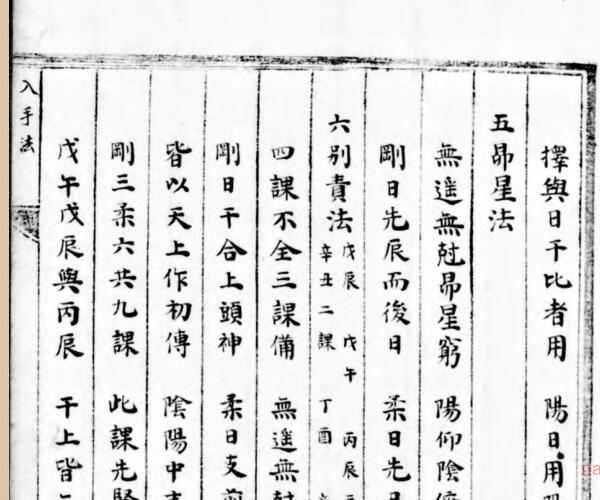 擇與日干比者用　陽日用
五昴星法
無遥無尅昴星窮　陽仰陰
剛日先辰而後日　柔日先
六别責法　戊辰　戊午　丙辰
辛丑二課　丁酉
四課不全三課備　無遥無尅
剛日干合上頭神　柔日支前
皆以天上作初傳　陰陽中
剛三柔六共九課　此課先
戊午戊辰與丙辰　干上皆
入手法